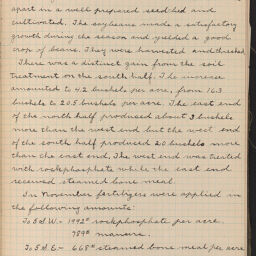 apart in a well prepared seed bed and
cultivated. The soybeans made a satisfactory
growth during the season and yielded a good
crop of beans. They were harvested and threshed.
There was a distinct gain from the soil
treatment on the south half. The increase
amounted to 4.2 bushels per acre, from 16.3
bushels to 20.5 bushels per acre. The east end
of the north half produced about 3 bushels
more than the west end but the west end
of the south half produced 2.0 bushels more
than the east end. The west end was treated
with rock phosphate while the east end
received steamed bone meal.
In November fertilizers were applied in
the following amounts:
To S.S.W. - 1992# rock phosphate per acre
789# manure.
To S.S.E. - 668# steamed bone meal per acre